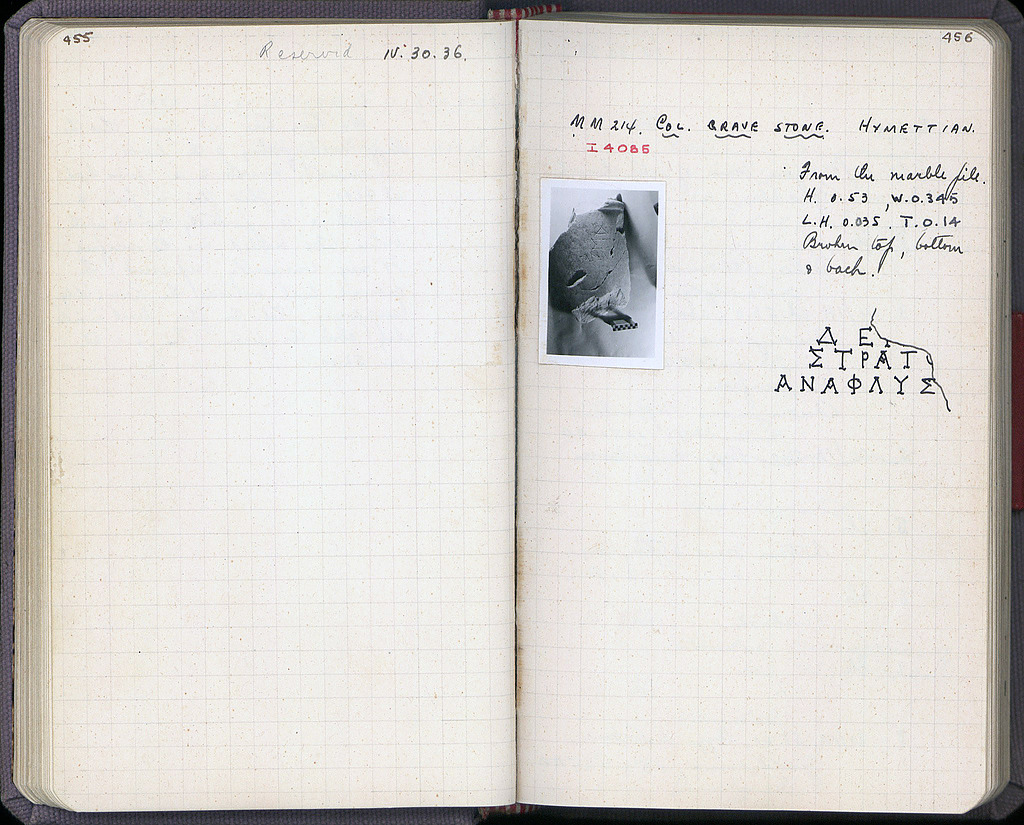 455
Reservid IV. 30. 36.
456
MM 214. COL. GRAVE STONE. HYMETTIAN.
I 4085
From the marble pile.
H. 0.53, W. 0.345
L.H. 0.035. T. 0.14
Broken top, bottom
& back.
Δ Ε
ΣΤΡΑΤ
ΑΝΑΦΛΥΣ